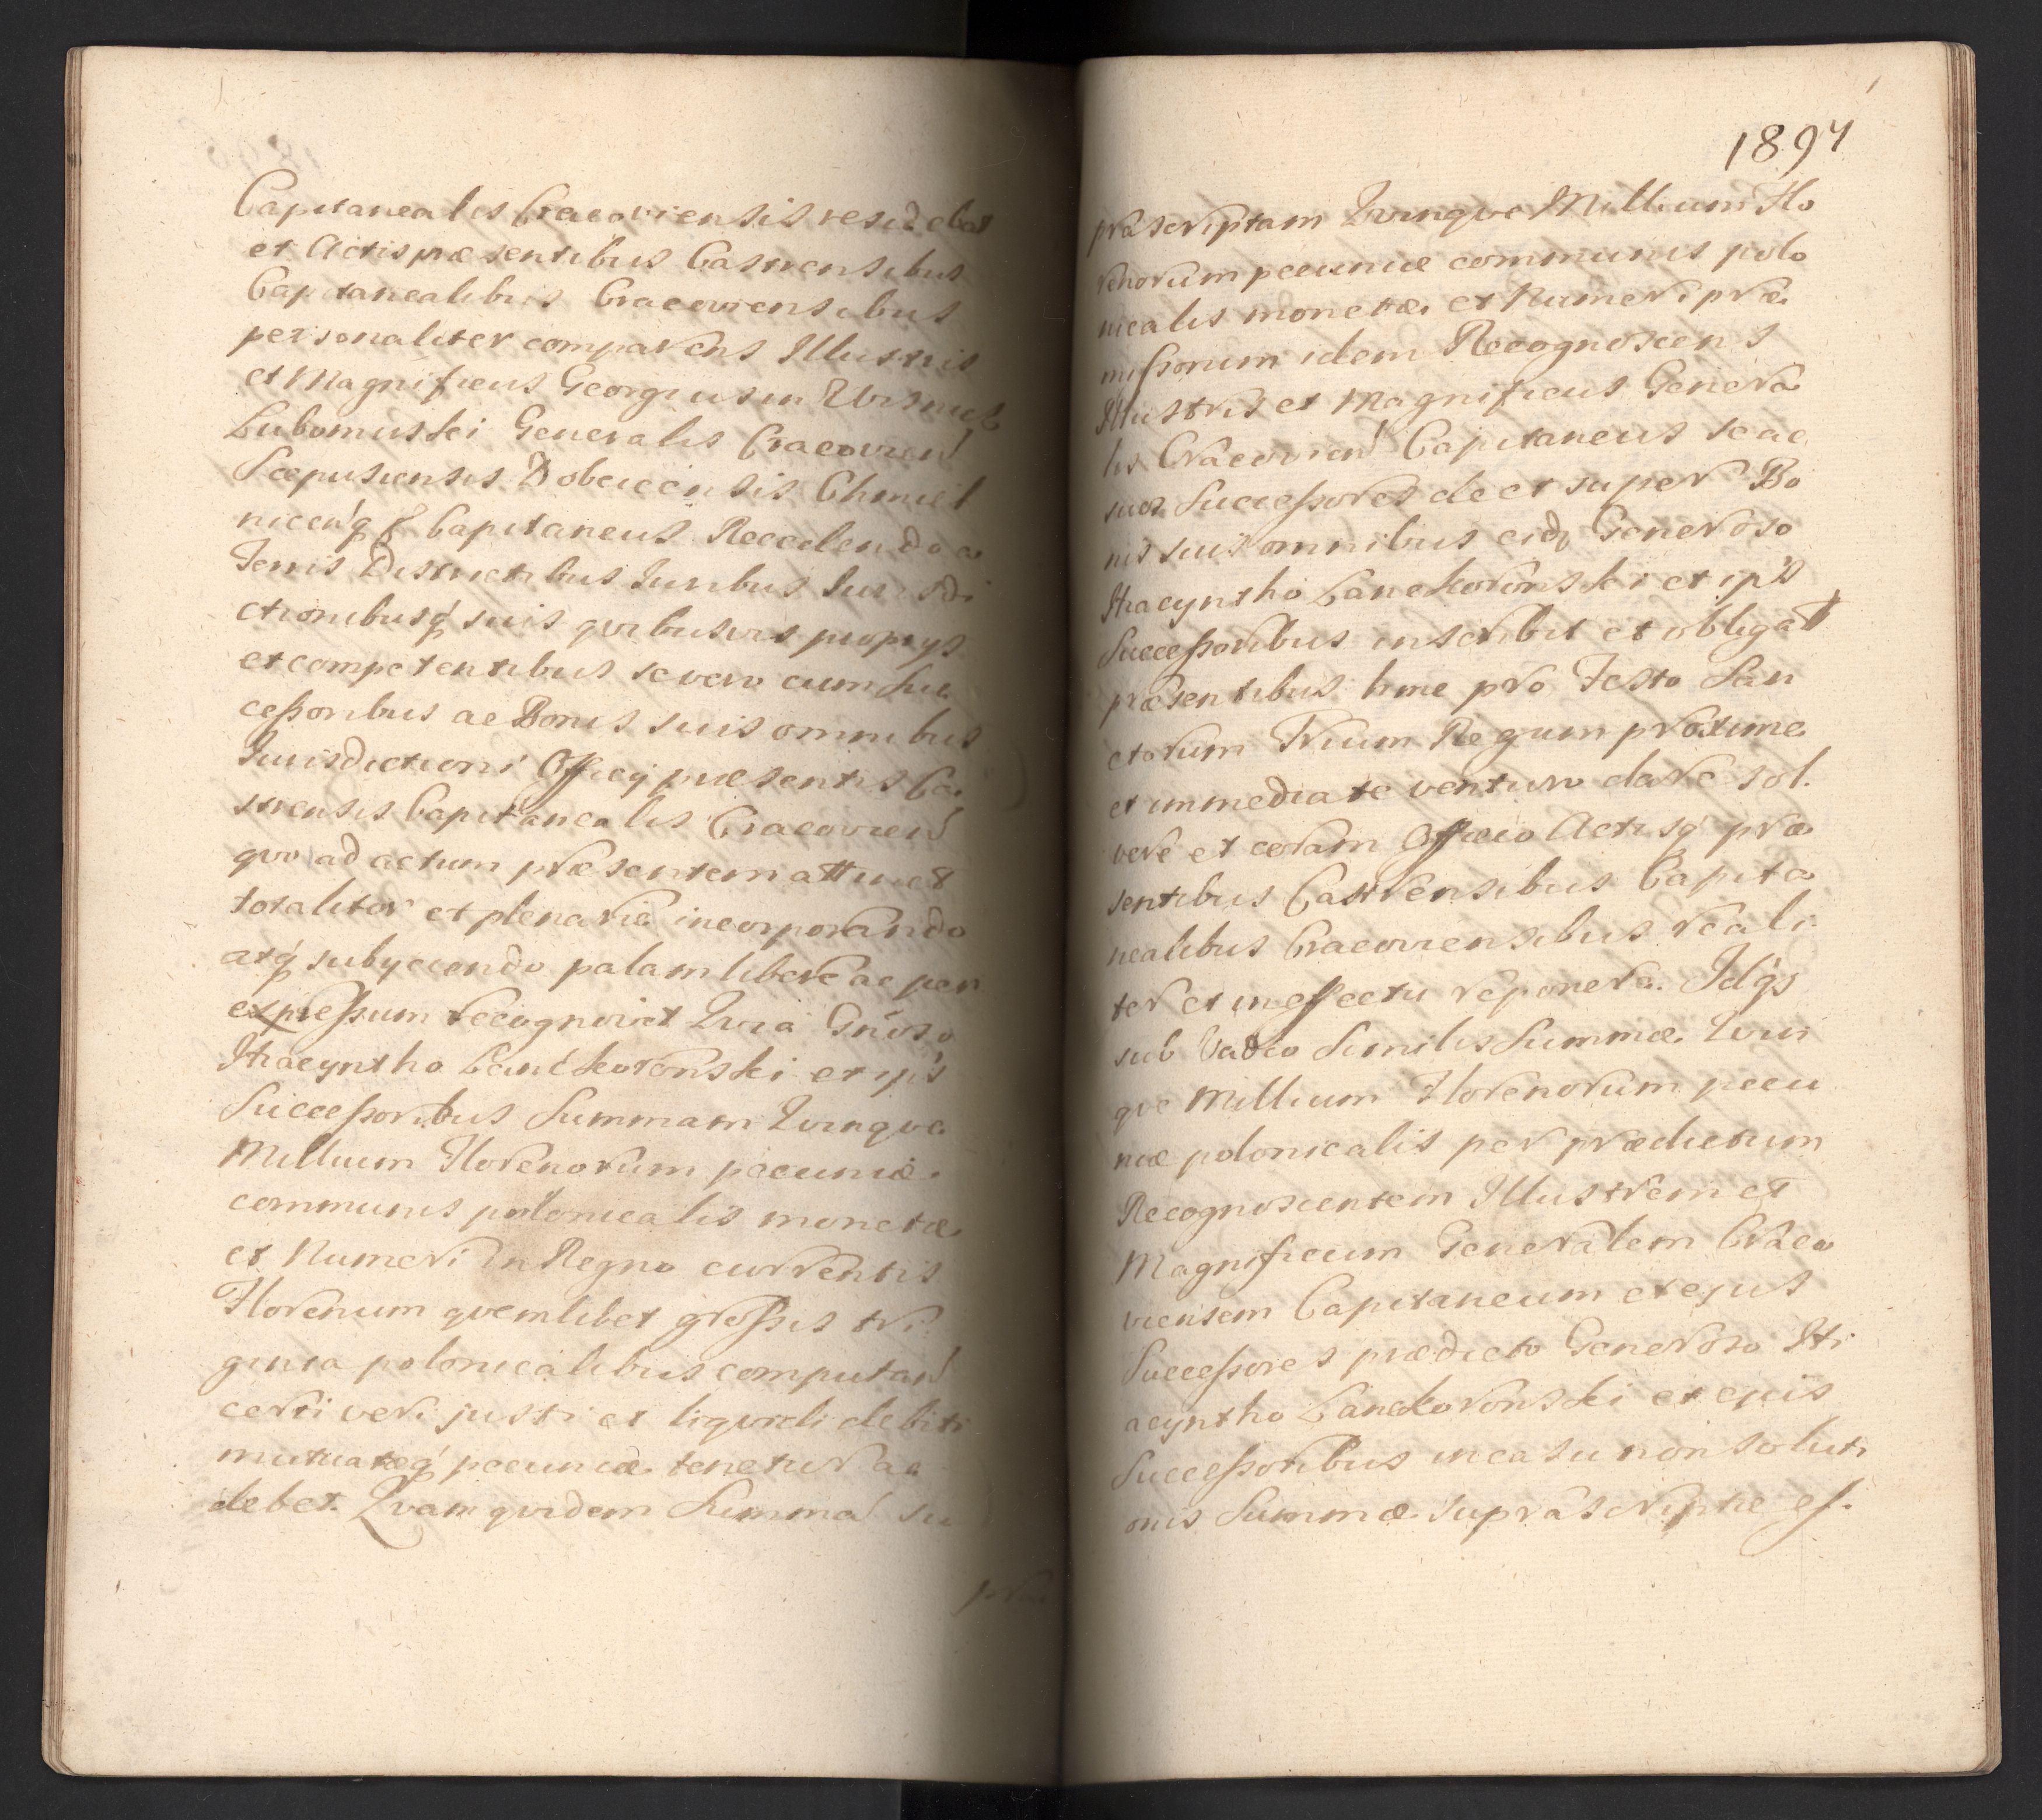 Capitanealis Cracoviensis residebat
et Actis præsentibus Castrensibus
Capitanealibus Cracoviensibus
personaliter comparens Illustris
et Magnificus Georgius in Wisnicz
Lubomirski Generalis Cracovien
Scepusiensis Dobcicensis Chmiel
nicenq Capitaneus Recedendo a
Terris Districtibus Iuribus Iurisdi
ctionibusq suis qvibusvis proprys
et competentibus se vero cum suc
cessoribus ac Bonis suis omnibus
Iurisdictioni Officij præsentis Ca
strensis Capitanealis Cracovien
qvo ad actum præsentem attinet
totaliter et plenarie incorporando
atq subyciendo palam libere ac per
expressum recognovit Qvia Gnoso
Hiacyntho Lanckoronski et ips
Successoribus Summam Qvinqve
Millium Florenorum pecuniæ
communis polonicalis monetæ
et Numeri in Regno currentis
Florenum qvemlibet grossis tri
ginta polonicalibus computan
certi veri justi et liqvidi debiti
mutuatæq pecuniæ tenetur ac
debet. Qvam qvidem Summa su
præ
1897
præscriptam Qvinqve Millium Flo
renorum pecuniæ communis polo
nicalis monetæ et Numeri præ
missorum idem Recognoscens
Illustris et Magnificus Genera
lis Cracovien Capitaneus se ac
suos Successores de et super Bo
nis suis omnibus eidq Generoso
Hiacyntho Lanckoronski et ips
Successoribus inscribit et obligat
præsentibus hinc pro Festo San
ctorum Trium Regum proxime
et immediate venturo dare sol.
vere et coram Officio Actisq præ
sentibus Castrensibus Capita
nealibus Cracoviensibus reali
ter et in effectu reponere. Idqs
sub Vadio Similis Summæ Qvin
qve Millium Florenorum pecu
niæ polonicalis per prædictum
Recognoscentem Illustrem et
Magnificum Generalem Craco
viensem Capitaneum et ejus
Successores prædicto Generoso Hi
acyntho Lanckoronski et ejus
Successoribus in casu non soluti
onis Summæ suprascriptæ es.